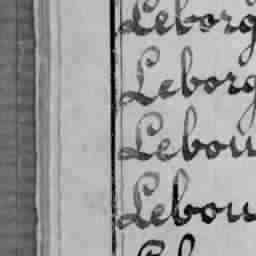 Leborg
Leborg
Lebou
Lebou